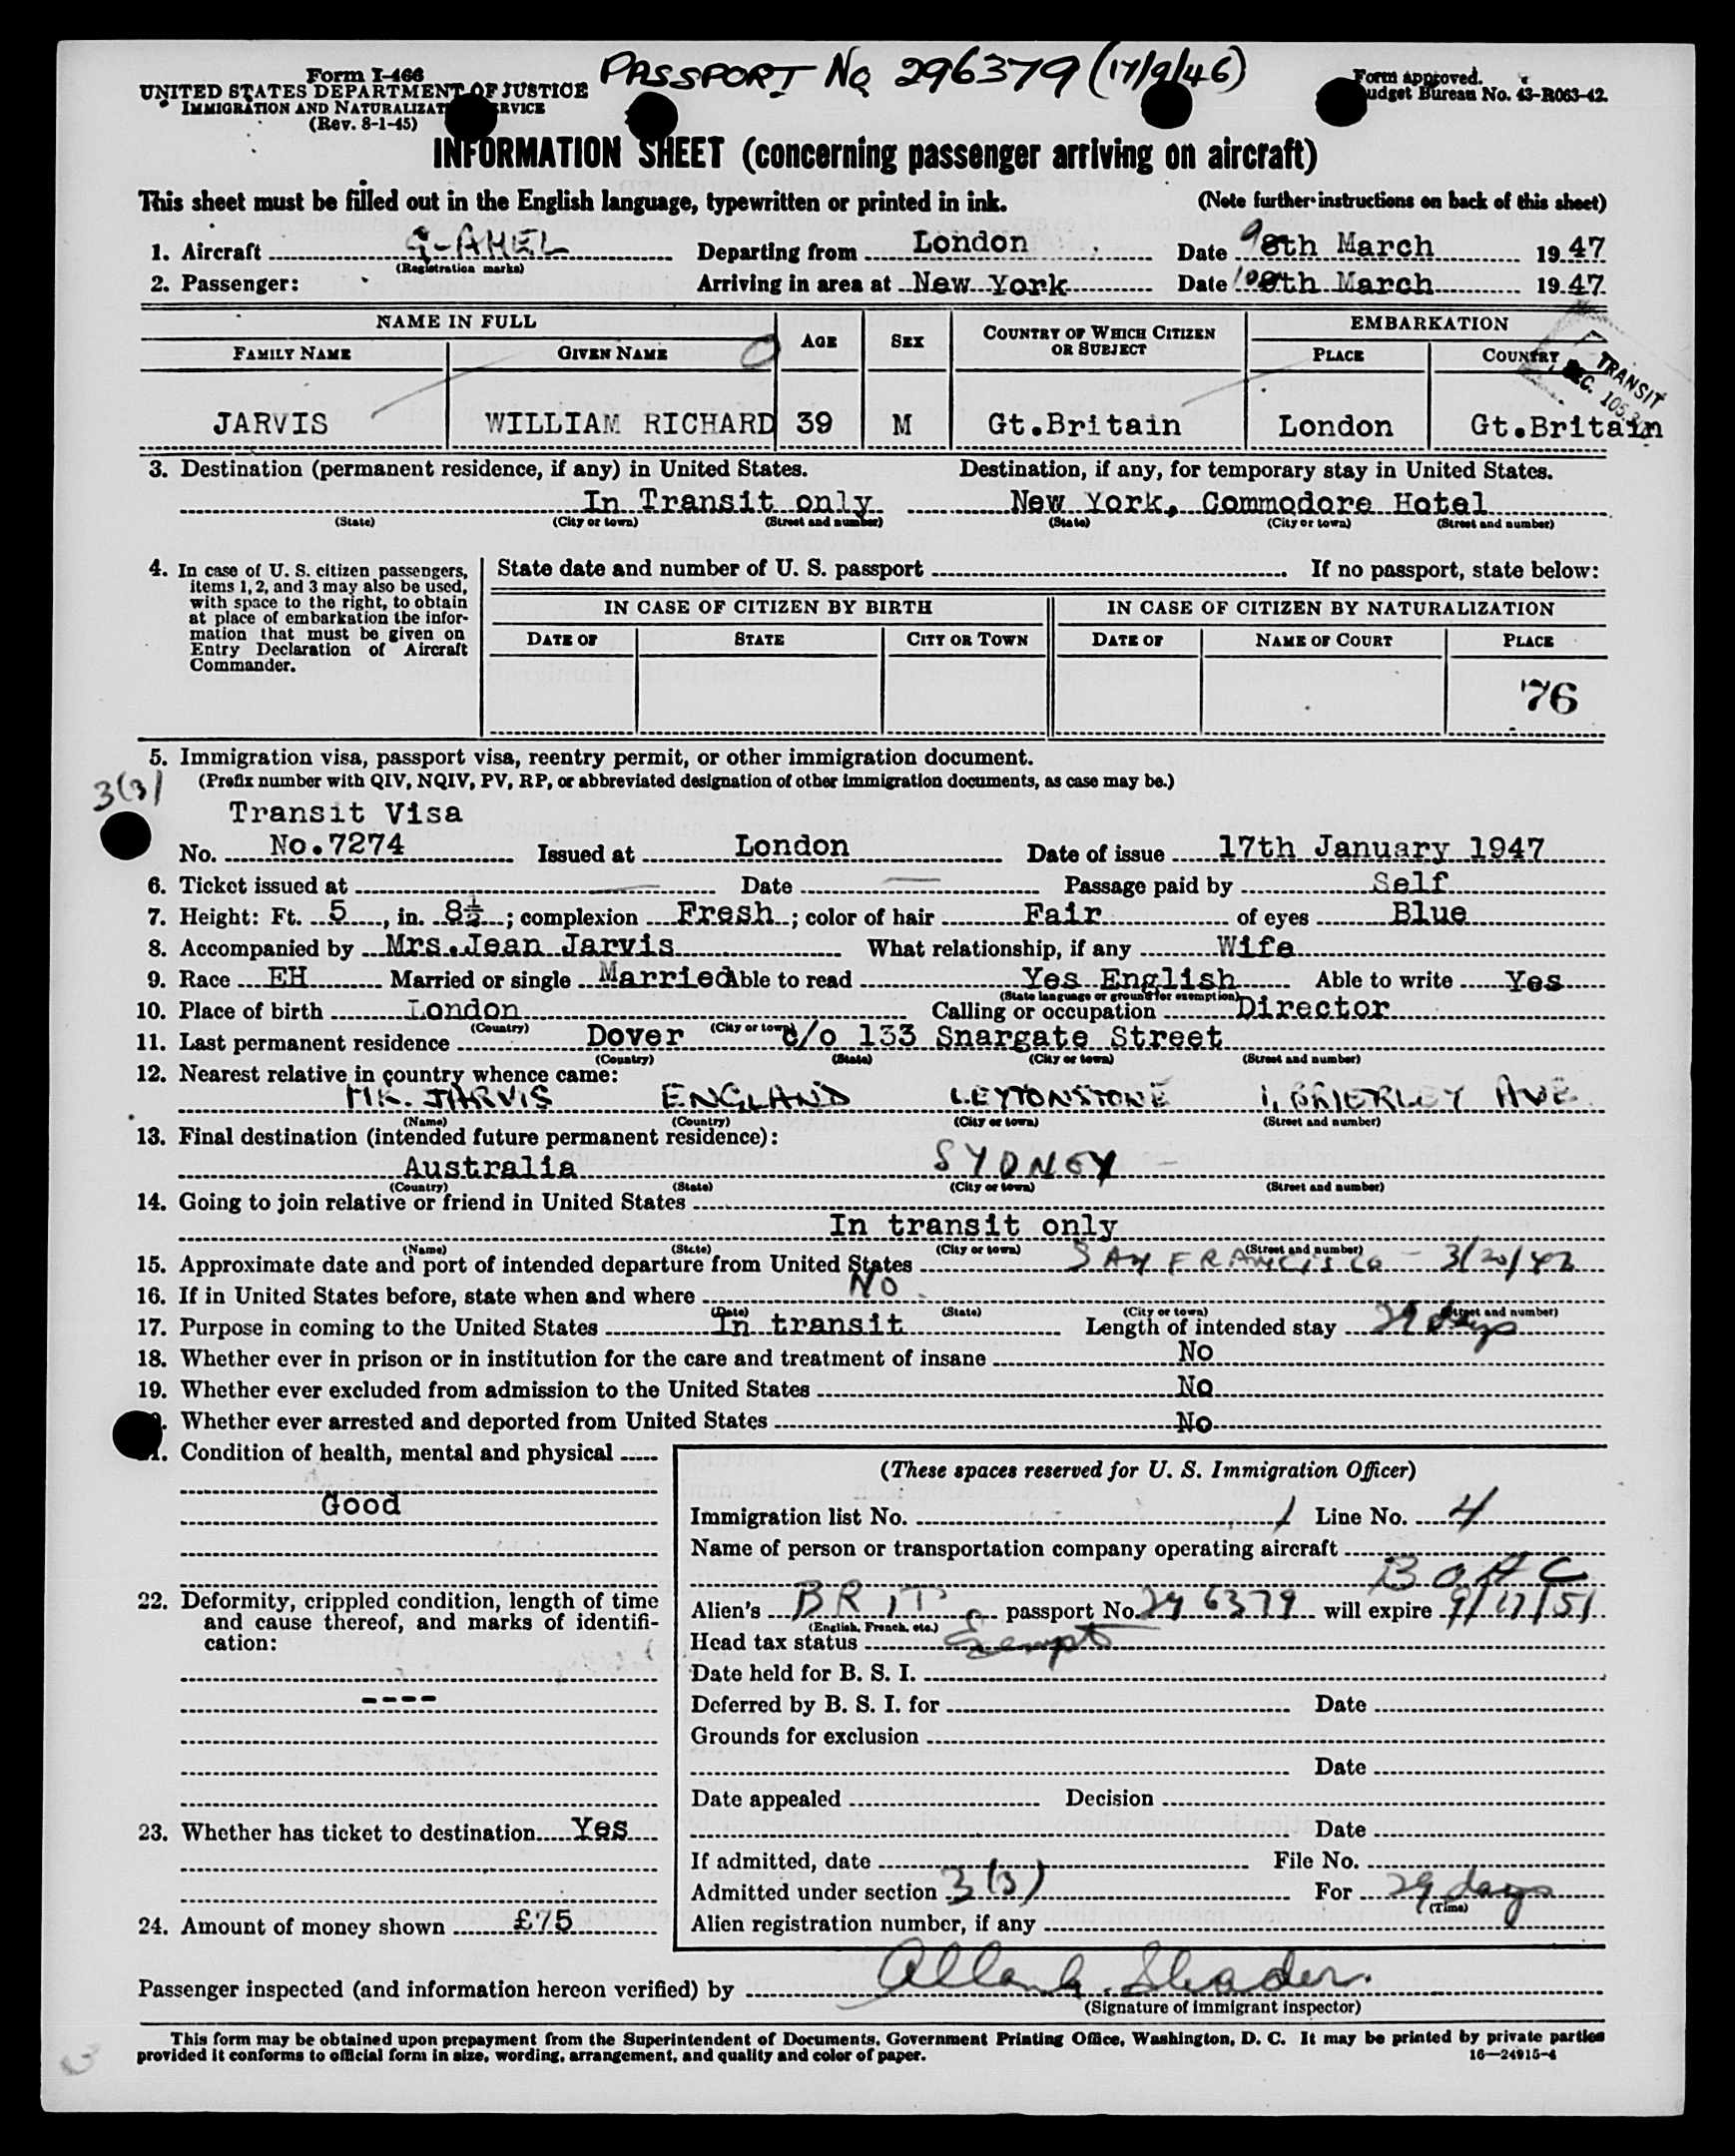 PASSPORT No 296379 (17/9/46)
Form I-466
UNITED STATES DEPARTMENT OF JUSTICE
IMMIGRATION AND NATURALIZAT RVICE
(Rev. 8-1-45)
Form approved.
udget Bureau No. 43-R063-42.
INFORMATION SHEET (concerning passenger arriving on aircraft)
This sheet must be filled out in the English language, typewritten or printed in ink. (Note further instructions on back of this sheet)
1. Aircraft G-AHEL Departing from London Date 9 8th March 1947
(Registration marks)
2. Passenger: Arriving in area at New York Date 10 9th March 1947
NAME IN FULL AGE SEX COUNTRY OF WHICH CITIZEN OR SUBJECT EMBARKATION
FAMILY NAME GIVEN NAME PLACE COUNTRY
TRANSIT
JARVIS WILLIAM RICHARD 39 M Gt.Britain London Gt.Britain
3. Destination (permanent residence, if any) in United States. Destination, if any, for temporary stay in United States.
In Transit only New York, Commodore Hotel
(State) (City or town) (Street and number) (State) (City or town) (Street and number)
4. In case of U. S. citizen passengers, items 1, 2, and 3 may also be used, with space to the right, to obtain at place of embarkation the information that must be given on Entry Declaration of Aircraft Commander.
State date and number of U. S. passport If no passport, state below:
IN CASE OF CITIZEN BY BIRTH IN CASE OF CITIZEN BY NATURALIZATION
DATE OF STATE CITY OR TOWN DATE OF NAME OF COURT PLACE
76
5. Immigration visa, passport visa, reentry permit, or other immigration document.
3(3)
(Prefix number with QIV, NQIV, PV, RP, or abbreviated designation of other immigration documents, as case may be.)
Transit Visa
No. No.7274 Issued at London Date of issue 17th January 1947
6. Ticket issued at — Date — Passage paid by Self
7. Height: Ft. 5, in. 8½; complexion Fresh; color of hair Fair of eyes Blue
8. Accompanied by Mrs.Jean Jarvis What relationship, if any Wife
9. Race EH Married or single Married Able to read Yes English Able to write Yes
(State language or ground for exemption)
10. Place of birth London Calling or occupation Director
(Country) (City or town)
11. Last permanent residence Dover c/o 133 Snargate Street
(Country) (State) (City or town) (Street and number)
12. Nearest relative in country whence came:
MR. JARVIS ENGLAND LEYTONSTONE 1, BRIERLEY AVE
(Name) (Country) (City or town) (Street and number)
13. Final destination (intended future permanent residence):
Australia SYDNEY
(Country) (State) (City or town) (Street and number)
14. Going to join relative or friend in United States
In transit only
(Name) (State) (City or town) (Street and number)
15. Approximate date and port of intended departure from United States SAN FRANCISCO - 3/20/47
16. If in United States before, state when and where NO
(Date) (State) (City or town) (Street and number)
17. Purpose in coming to the United States In transit Length of intended stay 29 days
18. Whether ever in prison or in institution for the care and treatment of insane No
19. Whether ever excluded from admission to the United States No
Whether ever arrested and deported from United States No
Condition of health, mental and physical
Good
22. Deformity, crippled condition, length of time and cause thereof, and marks of identification:
----
23. Whether has ticket to destination Yes
24. Amount of money shown £75
(These spaces reserved for U. S. Immigration Officer)
Immigration list No. 1 Line No. 4
Name of person or transportation company operating aircraft
BOAC
Alien's BRIT passport No. 296379 will expire 9/17/51
(English, French, etc.)
Head tax status Exempt
Date held for B. S. I.
Deferred by B. S. I. for Date
Grounds for exclusion
Date
Date appealed Decision
Date
If admitted, date File No.
Admitted under section 3(3) For 29 days
(Time)
Alien registration number, if any
Passenger inspected (and information hereon verified) by
(Signature of immigrant inspector)
This form may be obtained upon prepayment from the Superintendent of Documents, Government Printing Office, Washington, D. C. It may be printed by private parties
provided it conforms to official form in size, wording, arrangement, and quality and color of paper. 16—24915-4